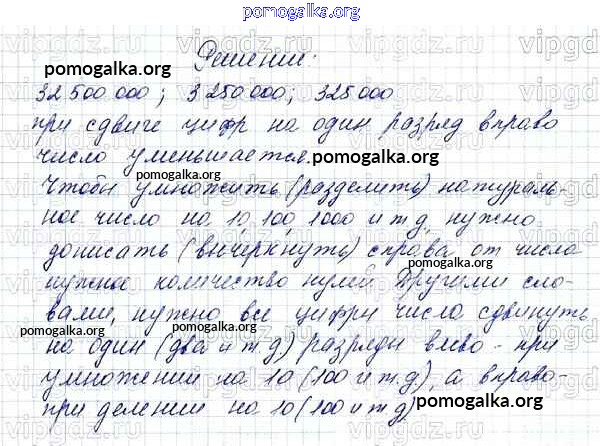 pomogalka.org
Решение:
pomogalka.org
32 500 000; 3 250 000; 325 000
при сдвиге цифр на один разряд вправо
число уменьшается. pomogalka.org
pomogalka.org
Чтобы умножить (разделить) натураль-
ное число на 10, 100, 1000 и т.д. нужно
pomogalka.org
дописать (вычеркнуть) справа от числа
pomogalka.org
нужное количество нулей. Другими сло-
вами, нужно все цифры числа сдвинуть
pomogalka.org pomogalka.org
на один (два и т.д) разряды влево - при
умножении на 10 (100 и т.д), а вправо-
pomogalka.org pomogalka.org
при делении на 10 (100 и т.д)
pomogalka.org
vipgdz.ru vipgdz.ru vipgdz.ru